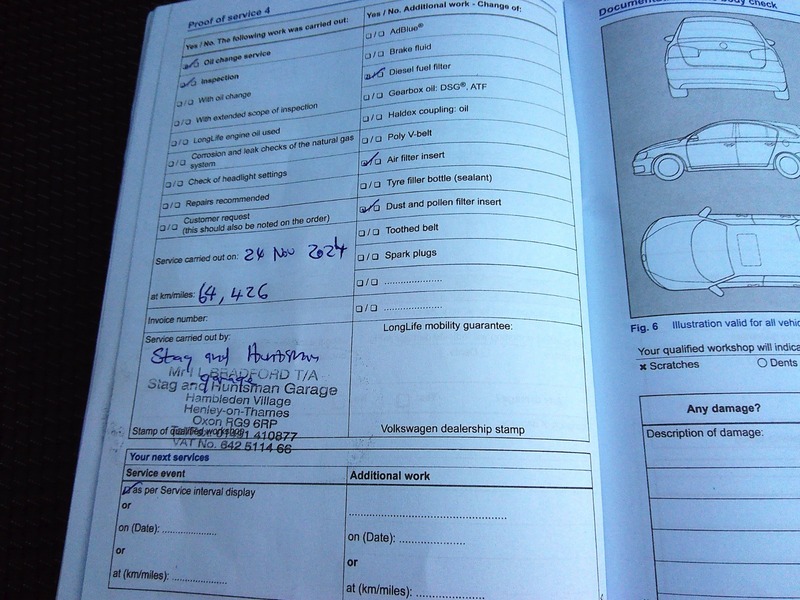 Proof of service 4
Yes / No. The following work was carried out:
Oil change service
Inspection
With oil change
With extended scope of inspection
LongLife engine oil used
Corrosion and leak checks of the natural gas
system
Check of headlight settings
Repairs recommended
Customer request
(this should also be noted on the order)
Service carried out on: 24 Nov 2024
at km/miles: 64,426
Invoice number:
Service carried out by:
Stag and Huntsman
garage
BRADFORD T/A
Stag and Huntsman Garage
Hambleden Village
Henley-on-Thames
Oxon RG9 6RP
01491 410877
VAT No. 642 5114 66
Stamp of qualified workshop
Yes / No. Additional work - Change of:
AdBlue®
Brake fluid
Diesel fuel filter
Gearbox oil: DSG®, ATF
Haldex coupling: oil
Poly V-belt
Air filter insert
Tyre filler bottle (sealant)
Dust and pollen filter insert
Toothed belt
Spark plugs
LongLife mobility guarantee:
Volkswagen dealership stamp
Your next services
Service event
as per Service interval display
or
on (Date): ....................
or
at (km/miles): ....................
Additional work
on (Date): ....................
or
at (km/miles): ....................
body check
Fig. 6 Illustration valid for all
Your qualified workshop will
Scratches
Dents
Any damage?
Description of damage: